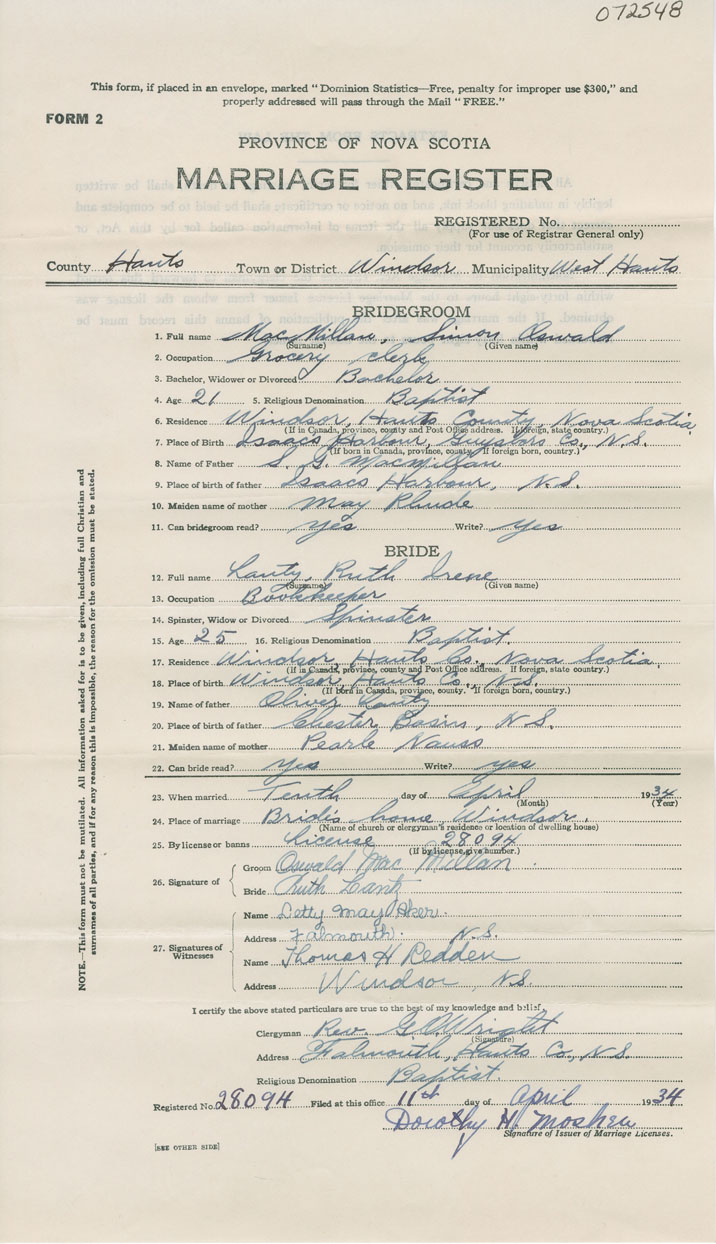 072548
This form, if placed in an envelope, marked "Dominion Statistics—Free, penalty for improper use $300," and
properly addressed will pass through the Mail "FREE."
FORM 2
PROVINCE OF NOVA SCOTIA
MARRIAGE REGISTER
REGISTERED No.
(For use of Registrar General only)
County Hants Town or District Windsor Municipality West Hants
BRIDEGROOM
1. Full name MacMillan, Simon Oswald
(Surname) (Given name)
2. Occupation Grocery clerk
3. Bachelor, Widower or Divorced Bachelor
4. Age 21 5. Religious Denomination Baptist
6. Residence Windsor, Hants County, Nova Scotia
(If in Canada, province, county and Post Office address. If foreign, state country.)
7. Place of Birth Isaacs Harbour, Guysboro Co., N.S.
(If born in Canada, province, county. If foreign born, country.)
8. Name of Father S. G. Macmillan
9. Place of birth of father Isaacs Harbour, N.S.
10. Maiden name of mother May Rhude
11. Can bridegroom read? yes Write? yes
BRIDE
12. Full name Lantz, Ruth Irene
(Surname) (Given name)
13. Occupation Bookkeeper
14. Spinster, Widow or Divorced Spinster
15. Age 25 16. Religious Denomination Baptist.
17. Residence Windsor, Hants Co., Nova Scotia,
(If in Canada, province, county and Post Office address. If foreign, state country.)
18. Place of birth Windsor, Hants Co., N.S.
(If born in Canada, province, county. If foreign born, country.)
19. Name of father Oliver Lantz
20. Place of birth of father Chester Basin, N.S.
21. Maiden name of mother Pearle Nauss
22. Can bride read? yes Write? yes
23. When married Tenth day of April 1934
(Month) (Year)
24. Place of marriage Bride's home, Windsor.
(Name of church or clergyman's residence or location of dwelling house)
25. By license or banns License 28094
(If by license, give number.)
26. Signature of Groom Oswald MacMillan.
Bride Ruth Lantz
27. Signatures of Witnesses
Name Letty May Aker.
Address Falmouth. N.S.
Name Thomas H Redden
Address Windsor, N.S.
I certify the above stated particulars are true to the best of my knowledge and belief.
Clergyman Rev. G. O. Wright
(Signature)
Address Falmouth, Hants Co, N.S.
Religious Denomination Baptist.
Registered No. 28094 Filed at this office 11th day of April 1934
Dorothy H. Mosher
Signature of Issuer of Marriage Licenses.
[SEE OTHER SIDE]
NOTE.—This form must not be mutilated. All information asked for is to be given, including full Christian and
surnames of all parties, and if for any reason this is impossible, the reason for the omission must be stated.